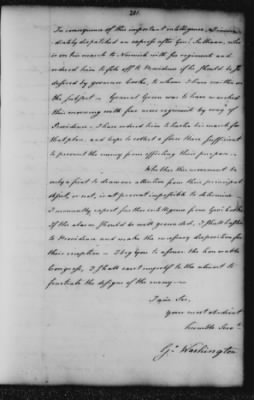 201
In consequence of this important intelligence, I imme-
diately dispatched an express after Genl. Sullivan, who
is on his march to Norwich with six regiments and
ordered him to file off to Providence if he should be
desired by governor Cooke, to whom I have written on
the subject — General Green was to have marched
this morning with five more regiments by way of
Providence — I have ordered him to hasten his march for
that place, and hope to collect a force there sufficient
to prevent the enemy from effecting their purpose —
Whether this movement be
only a feint to draw our attention from their principal
object, or not, is at present impossible to determine
I momently expect further intelligence from Govr. Cooke
If the alarm should be well grounded, I shall hasten
to Providence and make the necessary disposition for
their reception — I beg you to assure the honorable
Congress, I shall exert myself to the utmost to
frustrate the designs of the enemy —
I am Sir,
Your most obedient
humble Servt.
Go. Washington